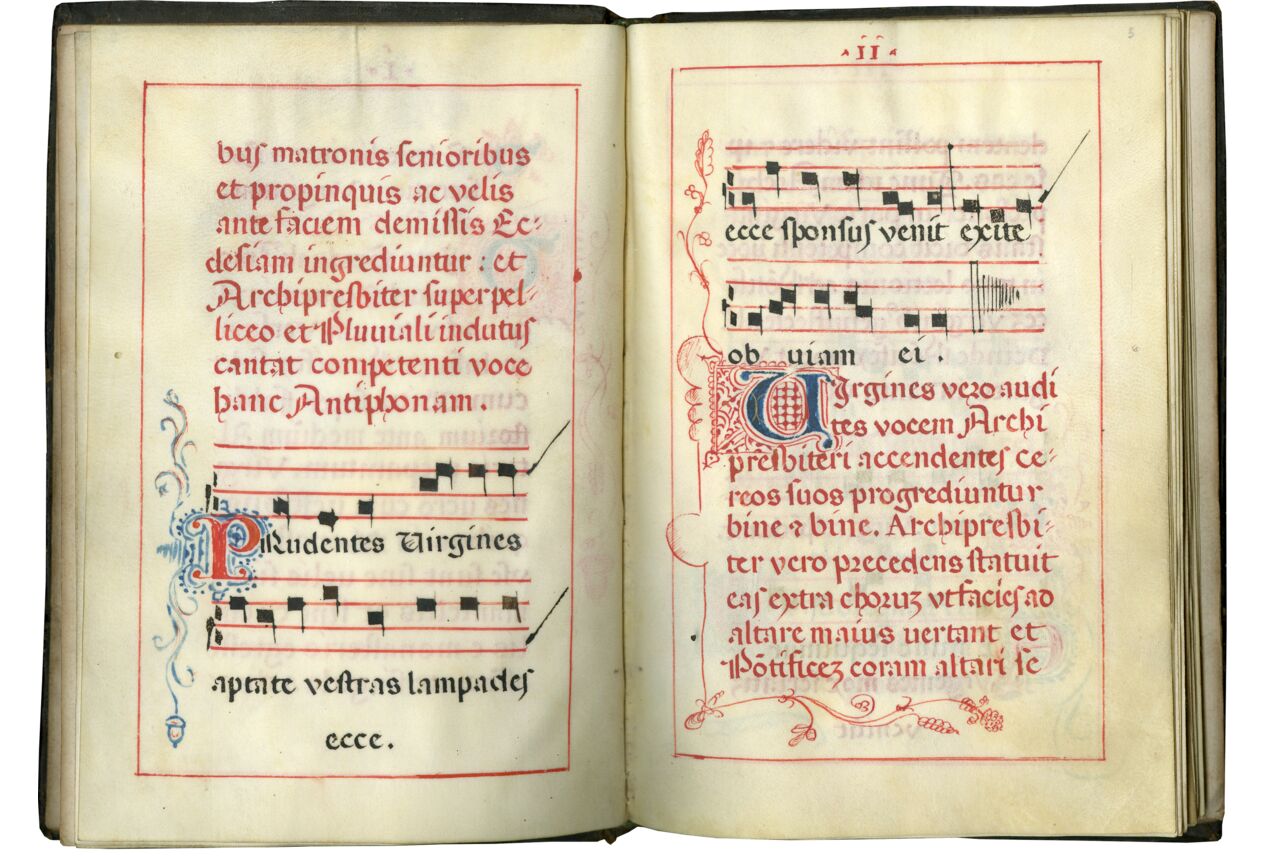 ·I·
bus matronis senioribus
et propinquis ac velis
ante faciem demissis Ec-
clesiam ingrediuntur : et
Archipresbiter superpel-
liceo et Pluviali indutus
cantat competenti voce
hanc Antiphonam.
PRudentes Uirgines
aptate vestras lampades
ecce.
·II·
5
ecce sponsus venit exite
ob uiam ei.
UIrgines vero audi
tes vocem Archi
presbiteri accendentes ce-
reos suos progrediuntur
bine & bine. Archipresbi-
ter vero precedens statuit
eas extra choruz vt facies ad
altare maius uertant et
Põtificez coram altari se